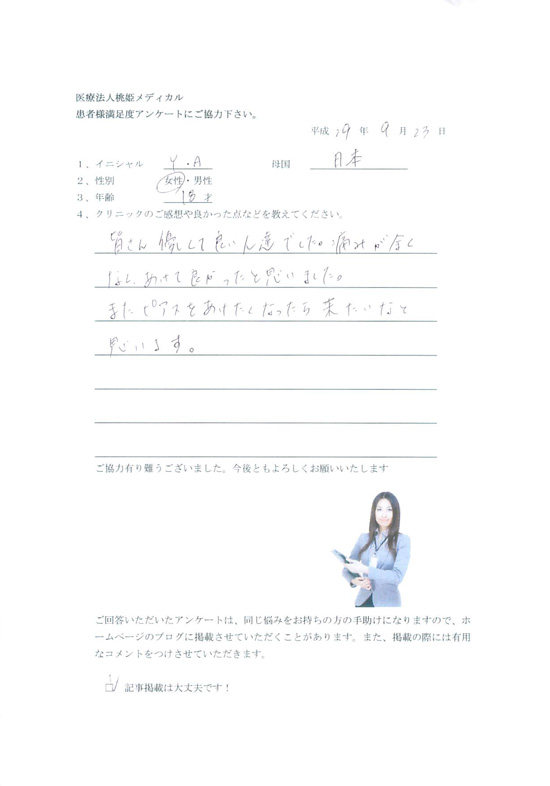 医療法人桃姫メディカル
患者様満足度アンケートにご協力下さい。
平成 29 年 9 月 23 日
1、イニシャル Y・A 母国 日本
2、性別 女性・男性
3、年齢 18才
4、クリニックのご感想や良かった点などを教えてください。
皆さん優しくて良い人達でした。痛みが全く
なく、あけて良かったと思いました。
またピアスをあけたくなったら来たいなと
思います。
ご協力有り難うございました。今後ともよろしくお願いいたします
ご回答いただいたアンケートは、同じ悩みをお持ちの方の手助けになりますので、ホ
ームページのブログに掲載させていただくことがあります。また、掲載の際には有用
なコメントをつけさせていただきます。
記事掲載は大丈夫です！